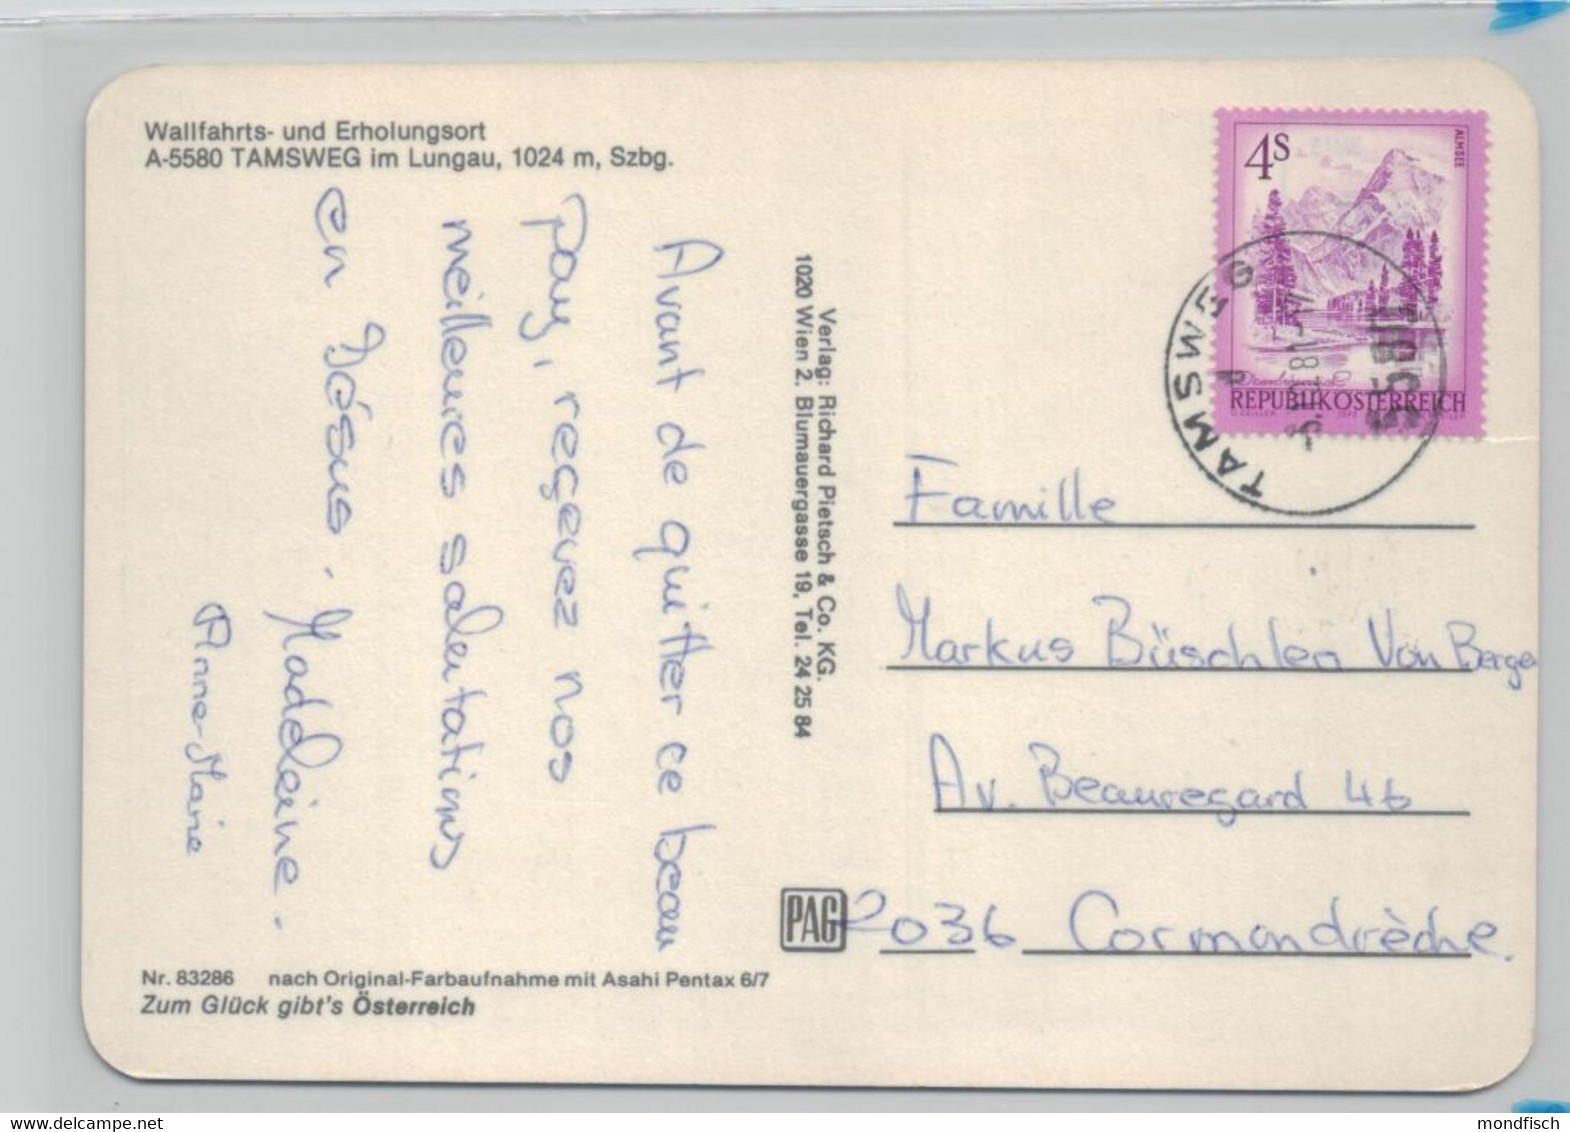 Wallfahrts- und Erholungsort
A-5580 TAMSWEG im Lungau, 1024 m, Szbg.
Avant de quitter ce beau
pays, reçevez nos
meilleures salutations
en Jésus. Madeleine.
Anne-Marie
Verlag: Richard Pietsch & Co. KG.
1020 Wien 2. Blumauergasse 19, Tel. 24 25 84
4S
ALMSEE
REPUBLIK ÖSTERREICH
TAMSWEG
5580
Famille
Markus Büschlen Von Bergen
Av. Beauregard 46
2036 Cormondrèche.
PAG
Nr. 83286 nach Original-Farbaufnahme mit Asahi Pentax 6/7
Zum Glück gibt's Österreich
mondfisch